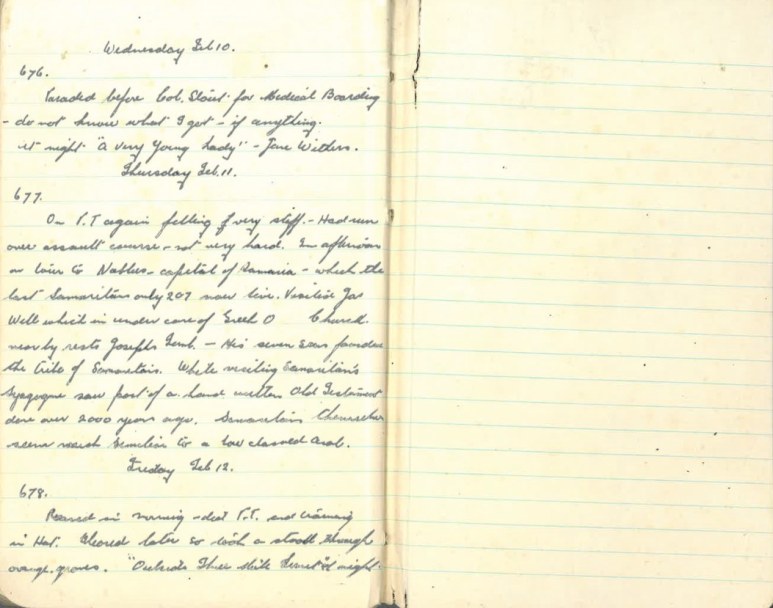 Wednesday Feb 10.
676.
Paraded before Col. for Medical Boarding
- do not know what I got - if anything.
at night "A Very Young Lady" - Jane Withers.
Thursday Feb. 11.
677.
On P.T again felling very stiff. - Had run
over assault course - not very hard. In afternoon
on tour to Nablus - capital of Samaria - which the
last Samaritans only 207 now live. Visited Jac
Well which is under care of Greek O Church.
nearby rests Josephs Tomb. - His seven sons founded
the tribe of Samaritans. While visiting Samaritans
Sygagogue saw part of a hand written Old Testament
done over 2000 years ago. Samaritans themselves
seem much similiar to a low classed Arab.
Friday Feb 12.
678.
in morning - did P.T. and training
in Hat. later so took a stroll through
orange groves. "Outside Three Mile Limit" at night.